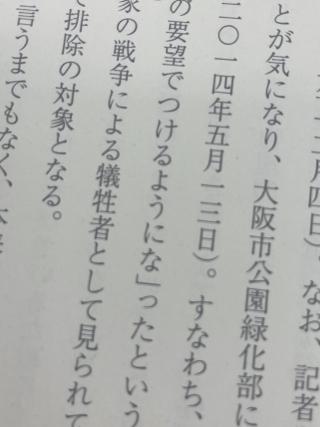 年一二月四日)。なお、記者
とが気になり、大阪市公園緑化部に
二〇一四年五月一三日)。すなわち、
の要望でつけるようにな」ったという
家の戦争による犠牲者として見られて
排除の対象となる。
言うまでもなく、